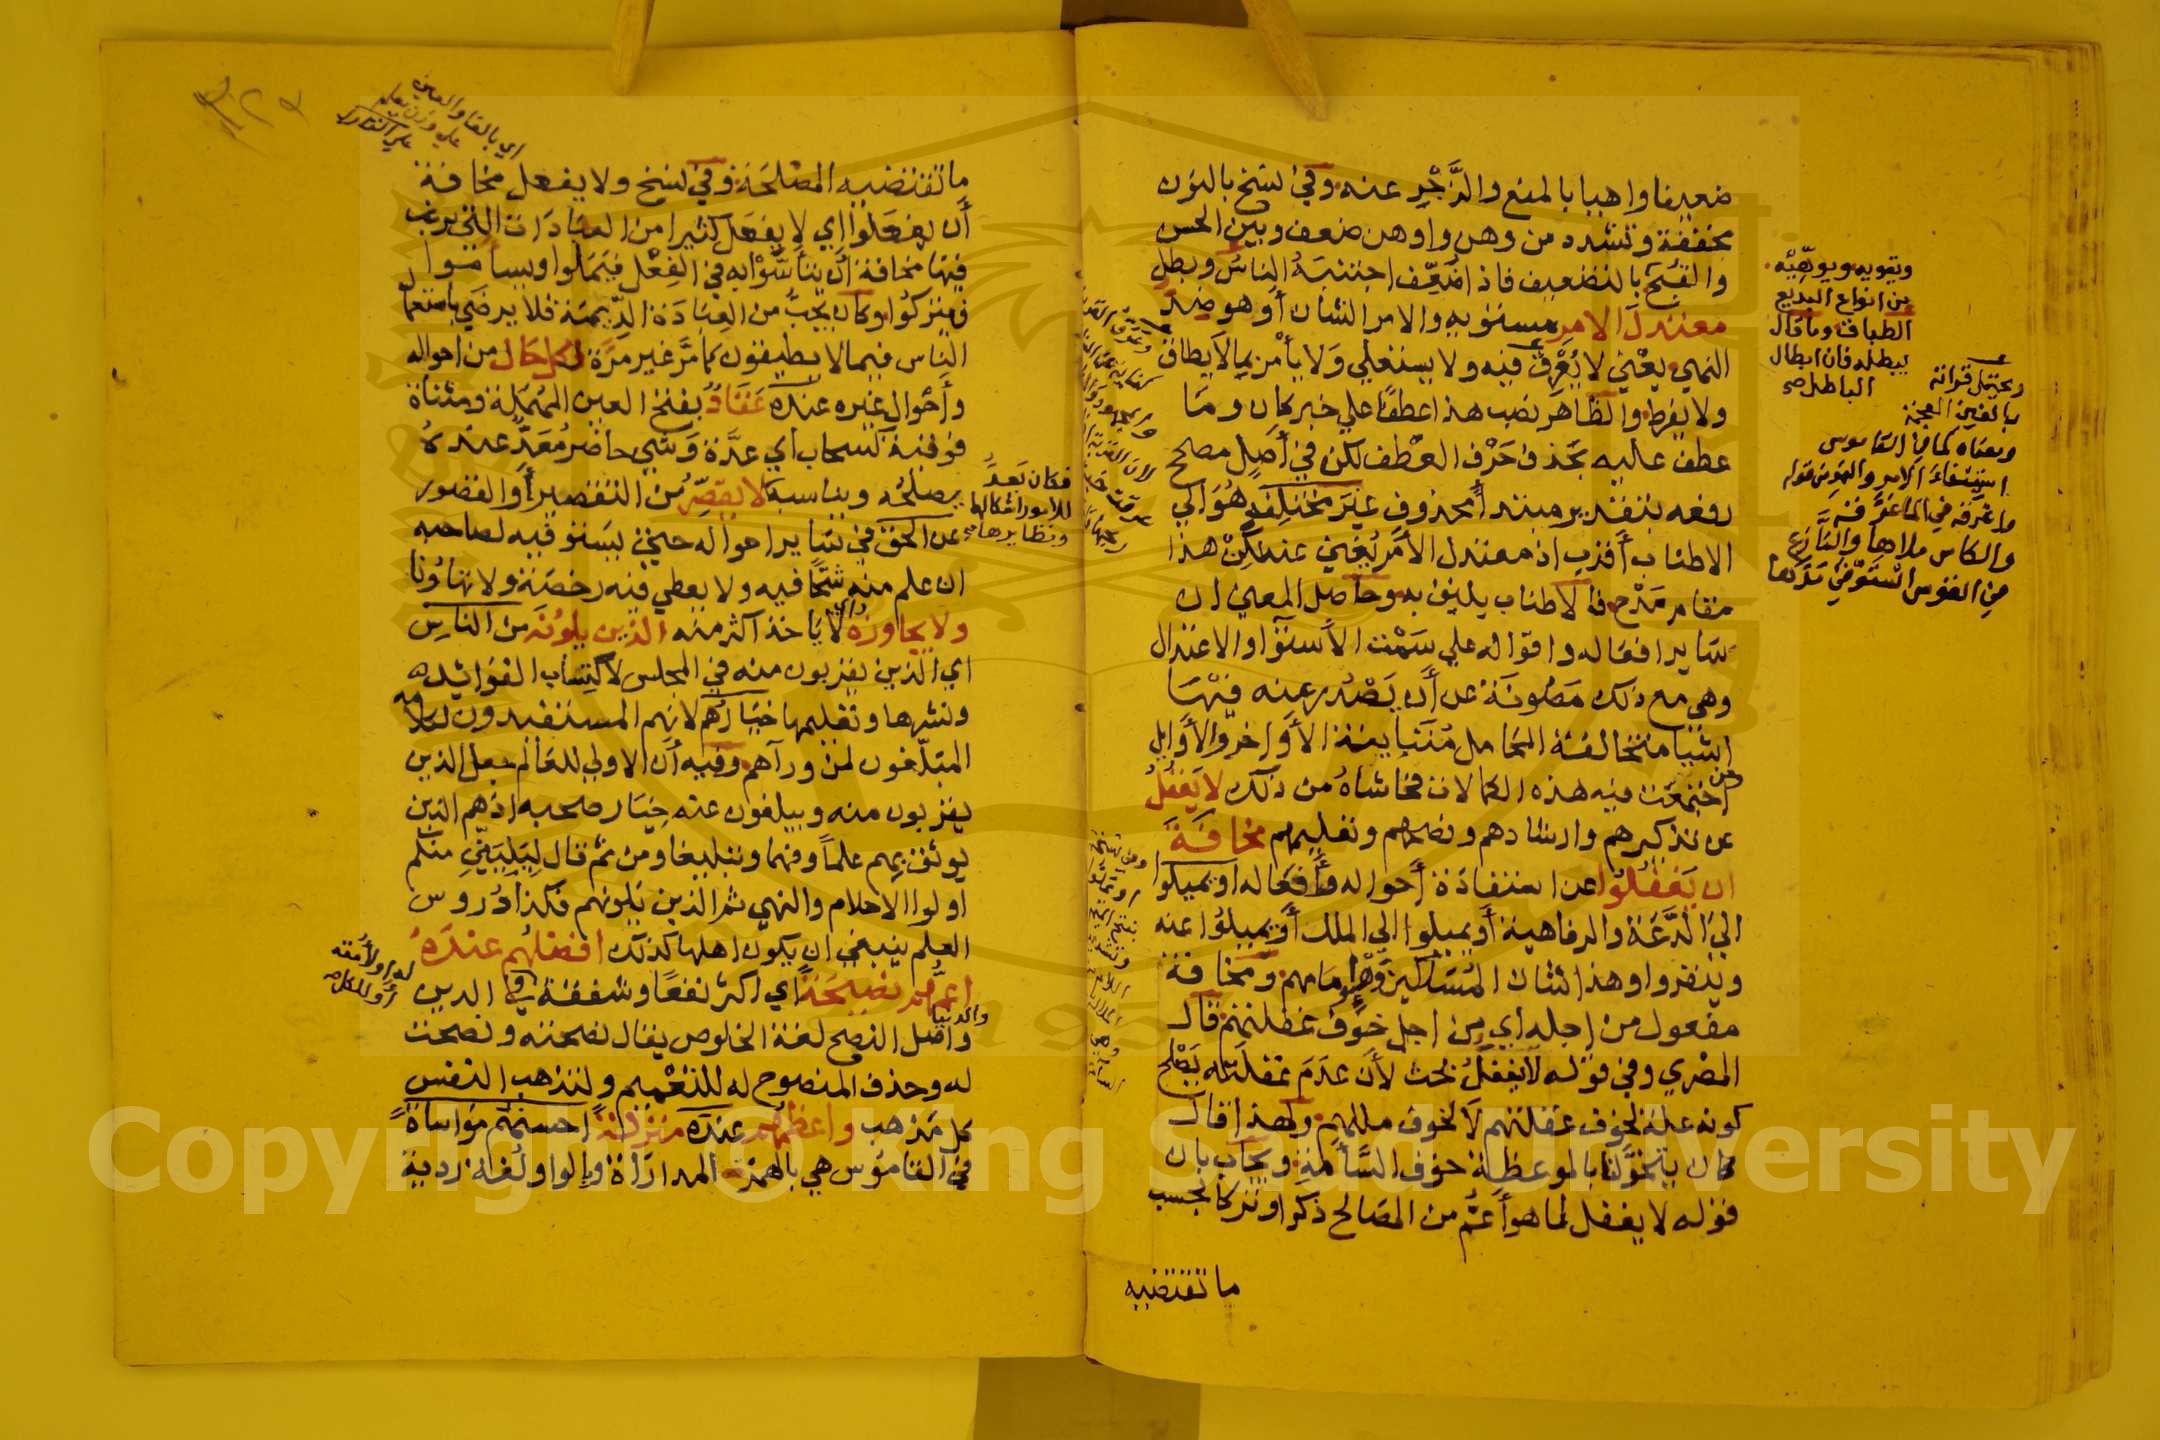 ضعيفا واهيا بالمنع والزجر عنه وفي نسخ بالنون
مخففة وتشدد من وهن واوهن ضعف وبين الحسن
والقبح بالتضعيف فاذا ضعف اجتنبه الناس وبطل
معتدل الامر مستويه والامر الشان أو هو ضد
النهي يعني لا يغرق فيه ولا يستعلي ولا يأمر بما لا يطاق
ولا يفرط والظاهر نصب هذا عطفا علي خبر كان وما
عطف عليه بحذف حرف العطف لكن في أصل مصحح
رفعه بتقدير مبتدأ محذوف غير مختلف هو الي
الاطناب أقرب اذ معتدل الأمر يغني عنه لكن هذا
مقام مدح فالاطناب يليق به وحاصل المعني ان
سائر افعاله واقواله علي سمت الاستوآ والاعتدال
وهي مع ذلك مصونة عن أن يصدر عنه فيها
اشيا متخالفة المحامل متباينة الأواخر والأوايل
من اجتمعت فيه هذه الكمالات فحاشاه من ذلك لا يغفل
عن تذكيرهم وارشادهم ونصحهم وتعليمهم مخافة
ان يغفلوا عن استفادة أحواله وأفعاله او يميلوا
الي الدعة والرفاهية أو يميلوا الي الملل أو يميلوا عنه
وينفروا وهذا شان المسلكين وامامهم ومخافة
مفعول من اجله اي من اجل خوف غفلتهم قال
المصري وفي قوله لا يغفل بحث لأن عدم غفلته يصلح
كونه علة لخوف غفلتهم لا لخوف مللهم ولهذا قال
كان يتخولنا بالموعظة خوف السأمة ويجاب بان
قوله لا يغفل لما هو أعم من المصالح ذكرا وتركا بحسب
ما تقتضيه
ويقويه ويوهيه
من انواع البديع
الطباق وما قال
يبطله فان ابطال
الباطل صح
ويحتمل قرانه
بالغين المعجمة
ومعناه كما في القاموس
والكاس ملاها والنازع
في القوس استوفي مدها
ما تقتضيه المصلحة وفي نسخ ولا يفعل مخافة
أن يفعلوا اي لا يفعل كثيرا من العبادات التي يرغب
فيها مخافة أن يتأسوا به في الفعل فيملوا ويسأموا
فيتركوا وكان يحب من العبادة الديمة فلا يرضي باستعمال
الناس فيما لا يطيقون كما مر غير مرة لكل حال من احواله
وأحوال غيره عنده عتاد بفتح العين المهملة ومثناة
فوقية كسحاب اي عدة وشي حاضر معد عنده
يصلحه ويناسبه لا يقصر من التقصير أو القصور
عن الحق في ساير احواله حتي يستوفيه لصاحبه
ان علم منه شحا فيه ولا يعطي فيه رخصة ولا تهاونا
ولا يجاوزه أي لا يأخذ اكثر منه الذين يلونه من الناس
اي الذين يقربون منه في المجلس لاكتساب الفوائد
ونشرها وتعليمها خيارهم لانهم المستفيدون لكلامه
المبلغون لمن ورآهم وفيه أن الاولي للعالم جعل الذين
يقربون منه ويبلغون عنه خيار صحبه اذ هم الذين
يوثق بهم علما وفهما وتبليغا ومن ثم قال ليليني منكم
اولوا الاحلام والنهي ثم الذين يلونهم فكذا دروس
العلم ينبغي ان يكون اهلها كذلك افضلهم عنده
اعمهم نصيحة اي اكثر نفعا وشفقة في الدين
والدنيا
وأصل النصح لغة الخلوص يقال نصحته ونصحت
له وحذف المنصوح له للتعميم ولتذهب النفس
كل مذهب واعظمهم عنده منزلة احسنهم مواساة
في القاموس هي بالهمزة المداراة وبالواو لغة ردية
اي بالفا والعين
فكان يعد
للامور اشكالها
ونظايرها صح